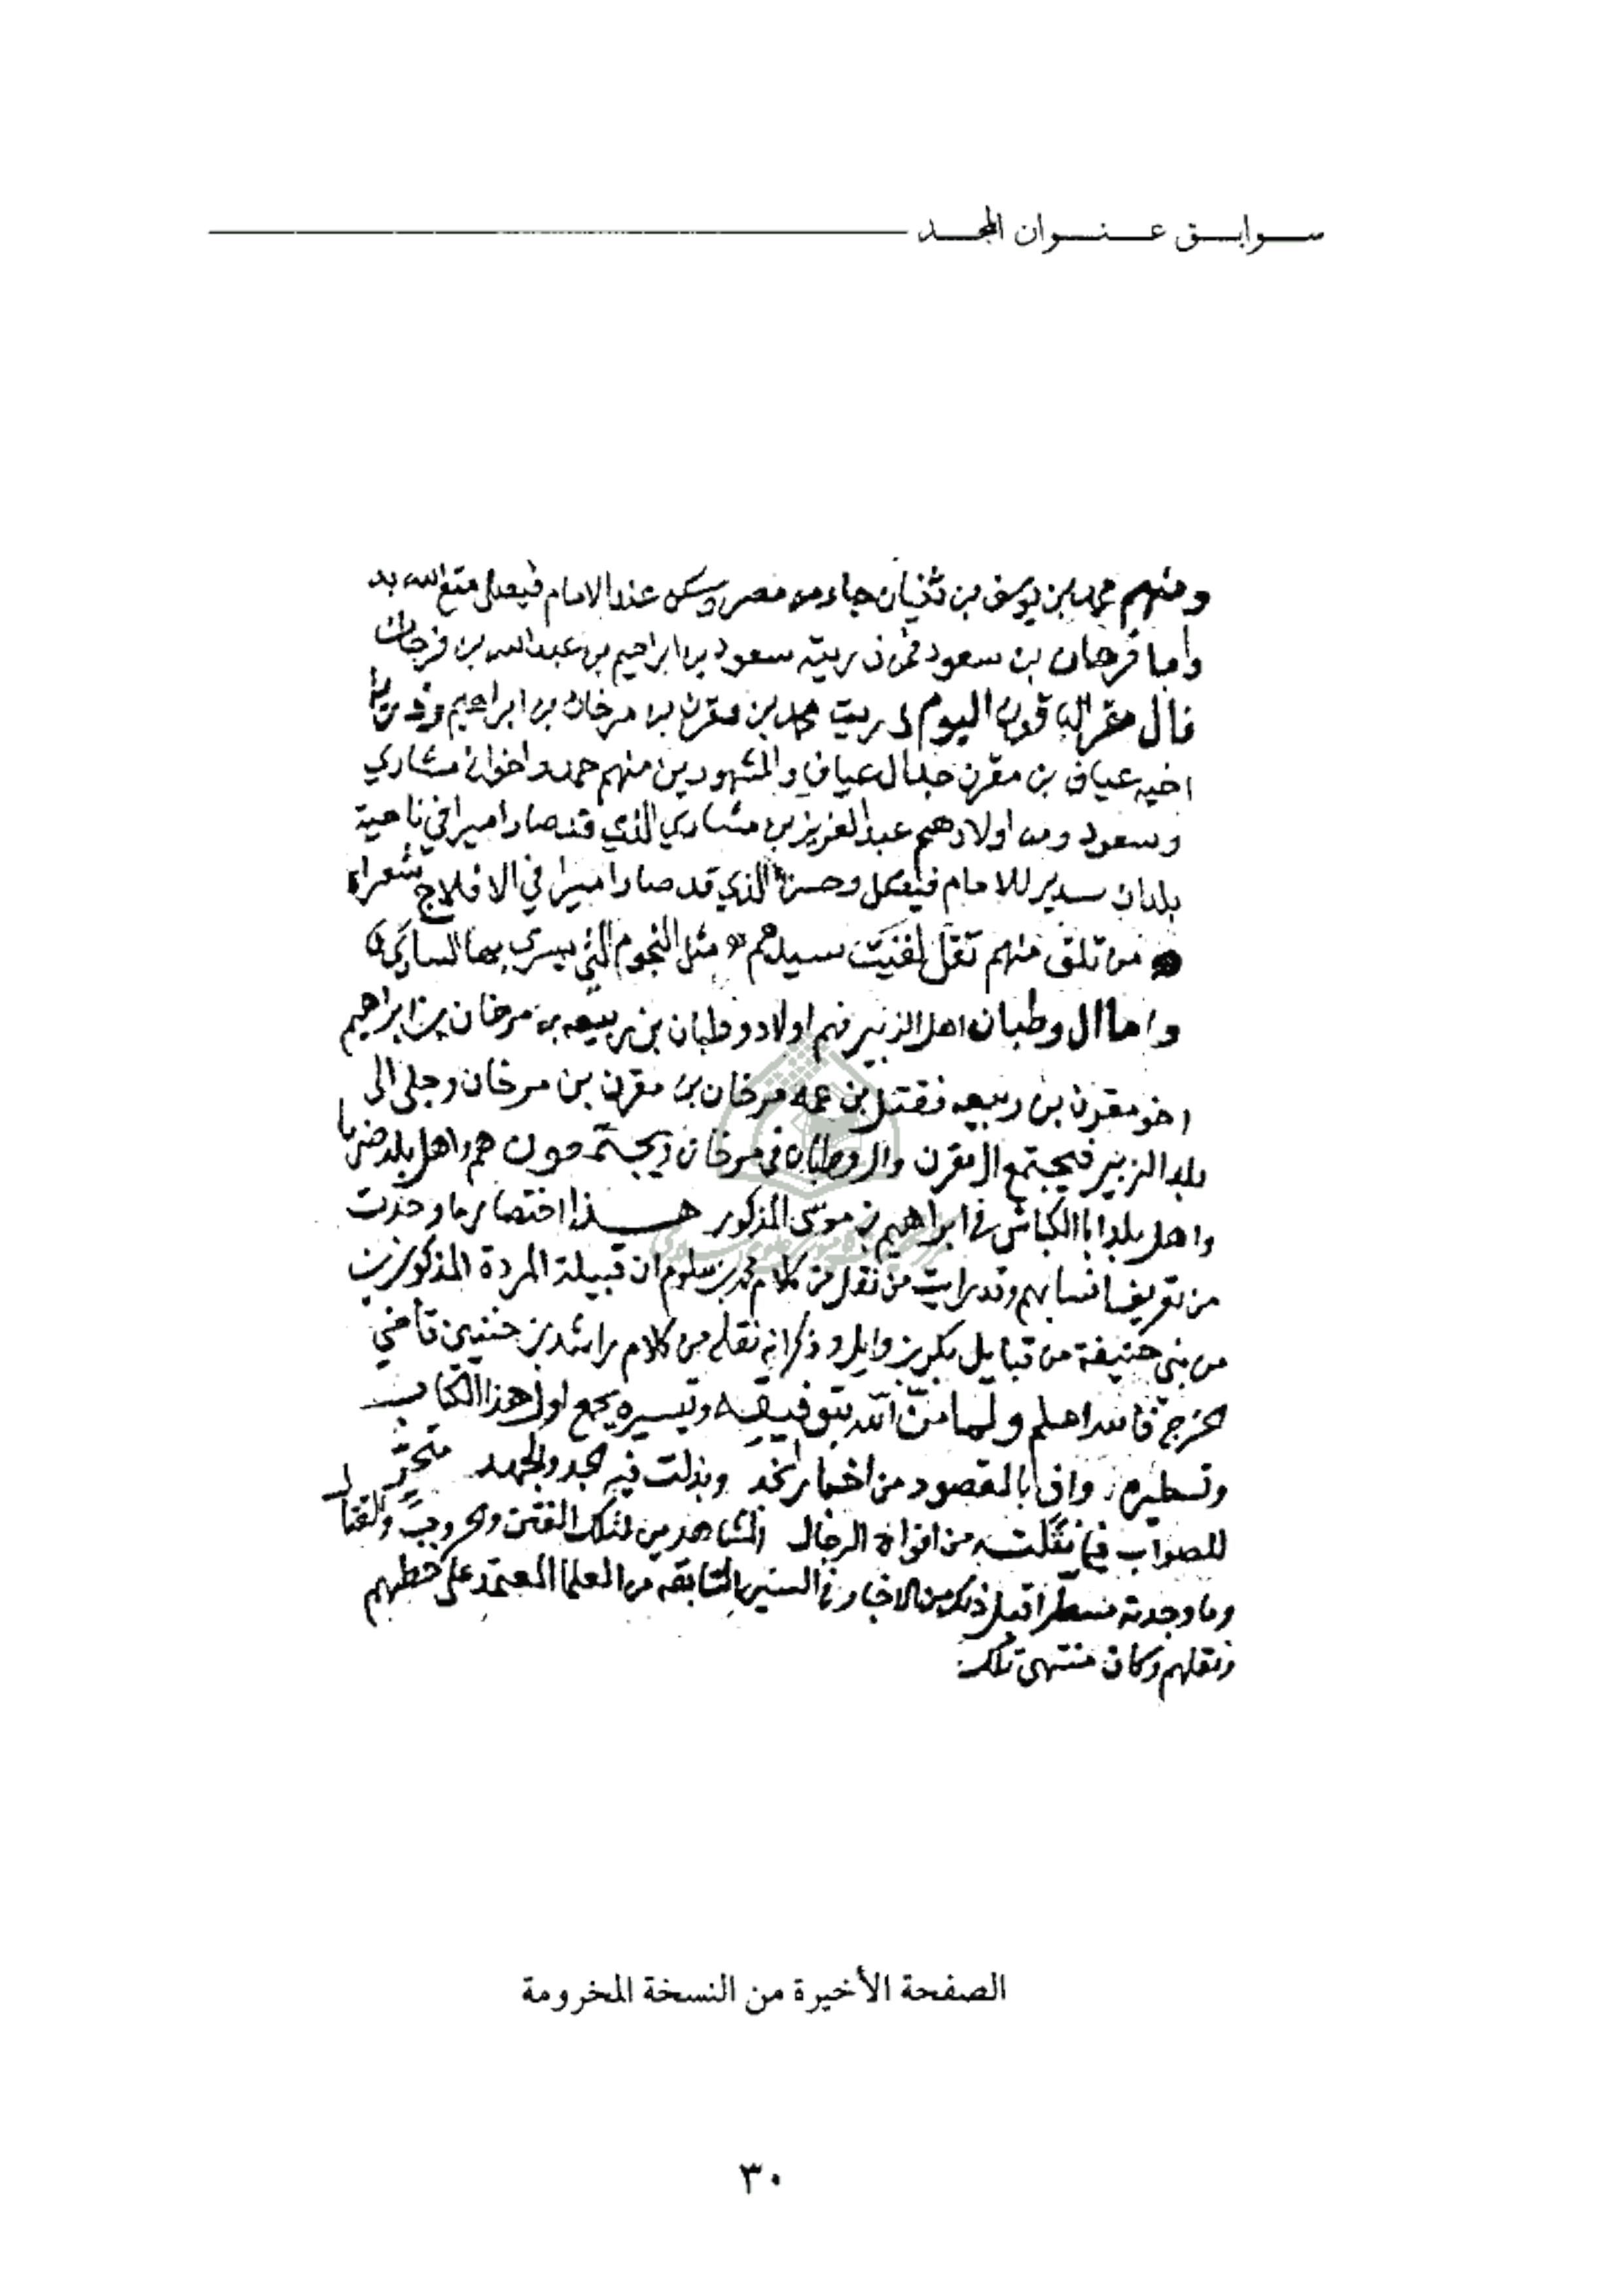 سوابق عنوان المجد
ومنهم محمد بن يوسف بن ثنيان جاء من مصر وسكن عند الامام فيصل متع الله به
واما فرحان بن سعود فمن ذريته سعود بن ابراهيم بن عبدالله بن فرحان
فال مقرن الباقون اليوم ذريت محمد بن مقرن بن مرخان بن ابراهيم وذرية
اخيه عياف بن مقرن جد ال عياف والمشهورين منهم حمد واخوانه مشاري
وسعود ومن اولادهم عبدالعزيز بن مشاري الذي قد صار اميرا في ناحية
بلدان سدير للامام فيصل وحسن الذي قد صار اميرا في الافلاج شعرا
من تلق منهم تقل لقيت سيدهم مثل النجوم التي يسري بها الساري
واما ال وطبان اهل الزبير فهم اولاد وطبان بن ربيعه بن مرخان بن ابراهيم
اخو مقرن بن ربيعه فقتل بن عمه مرخان بن مقرن بن مرخان وجلى الى
بلد الزبير فيجتمع ال مقرن وال وطبان في مرخان ويجتمعون هم واهل بلد ضرما
واهل بلد ابا الكباش في ابراهيم بن موسى المذكور هـذا اختصار ما وجدت
من تعريف انسابهم وقد رايت من نقل من كلام محمد بن سلوم ان قبيلة المردة المذكورين
من بني حنيفة من قبايل بكر بن وايل وذكر انه نقله من كلام راشد بن خنين قاضي
الخرج فالله اعلم ولما منّ الله بتوفيقه وتيسيره بجمع اول هذا الكتاب
وتسطيره وافا بالمقصود من اخبار نجد وبذلت فيه الجد والجهد متحرّ
للصواب فيما نقلته من افواه الرجال المشاهدين لتلك الفتن والحروب والقتال
وما وجدته مسطرا قبل ذلك من الاخبار في السنين السابقه من العلما المعتمد على خطهم
ونقلهم وكان منتهى تلك
الصفحة الأخيرة من النسخة المخرومة
٣٠